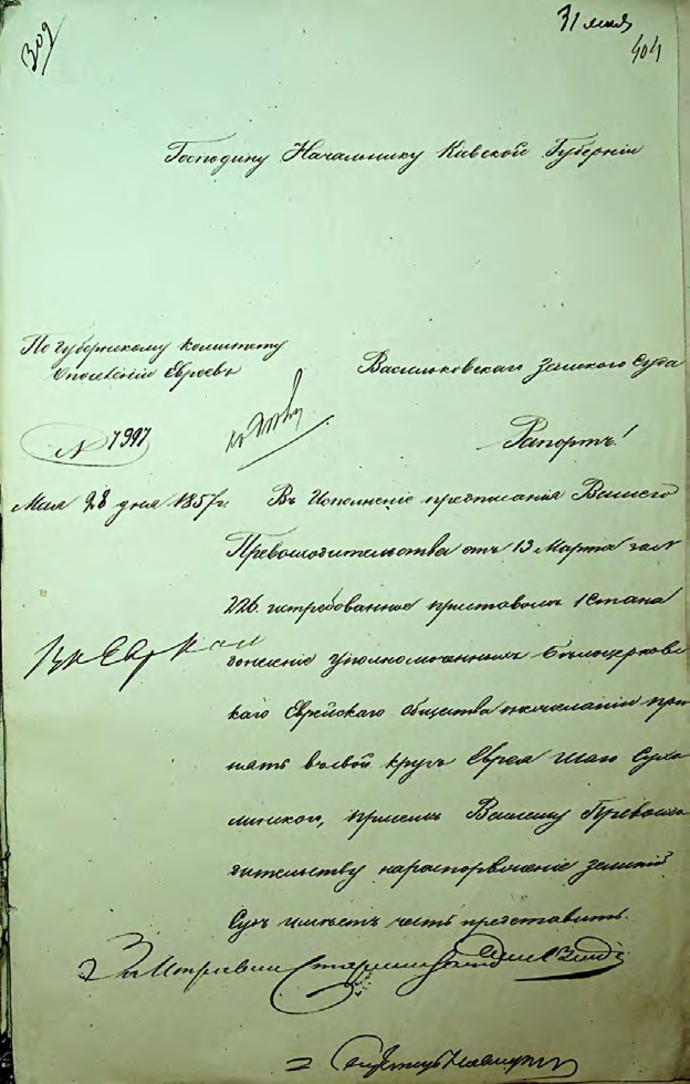 309
31 мая
404
Господину Начальнику Кіевской Губерніи
По Губернскому комитету
о поселеніи Евреевъ
N 7997
Мая 28 дня 1857 г.
Васильковскаго Земскаго Суда
Рапортъ!
Въ Исполненіе предписанія Вашего
Превосходительства отъ 13 Марта за N
226. истребованное приставомъ 1 Стана
донесеніе уполномоченныхъ Бѣлоцерковс
каго Еврейскаго общества о нежеланіи при
нять въ свой кругъ Еврея Сухо
линскаго, при семъ Вашему Превосхо
дительству на распоряженіе земскій
Судъ имѣетъ честь представить.
За Исправника Старшій